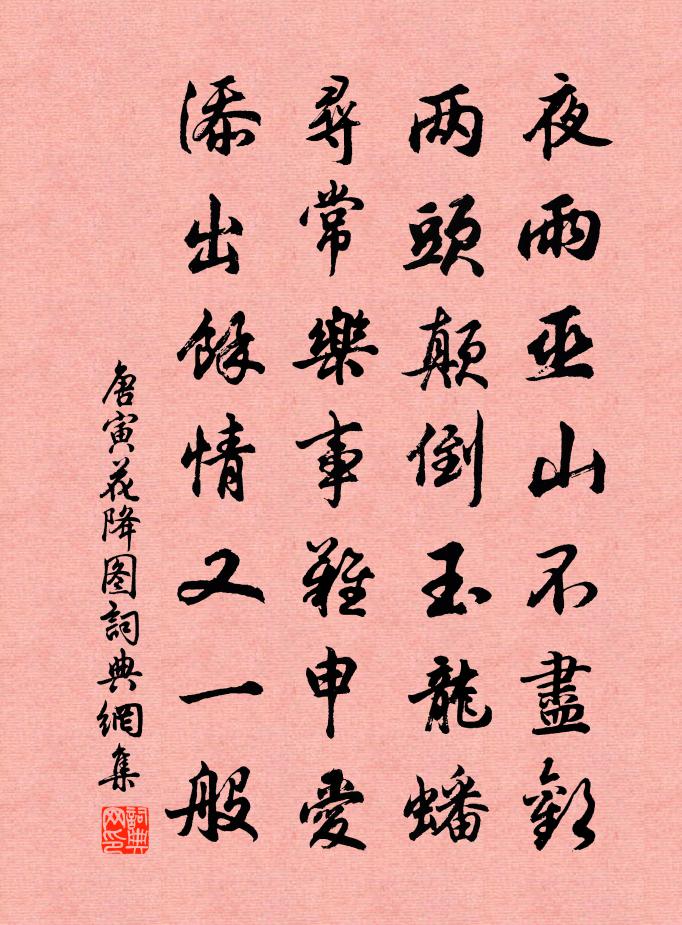 夜雨巫山不盡歡
两頭顛倒玉龍蟠
尋常樂事難申愛
添出餘情又一般
唐寅花降图詞典網集
詞典网印